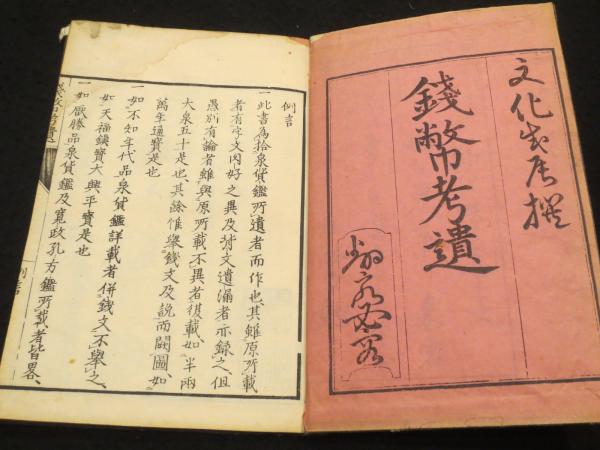 文化戊辰撰
錢幣考遺
例言
一此書為拾泉貨鑑所遺者而作也、其雖原所載
者有字文肉好之異及背文遺漏者亦録之、但
愚別有論者雖與原所載不異者復載、如半兩
大泉五十是也、其餘惟舉錢文及說而闕圖、如
萬年通寶是也
一如不知年代品泉貨鑑詳載者併錢文不舉之、
如天福鎮寶大興平寶是也
一如厭勝品泉貨鑑及寬政孔方鑑所載者皆畧、
錢幣考遺
例言